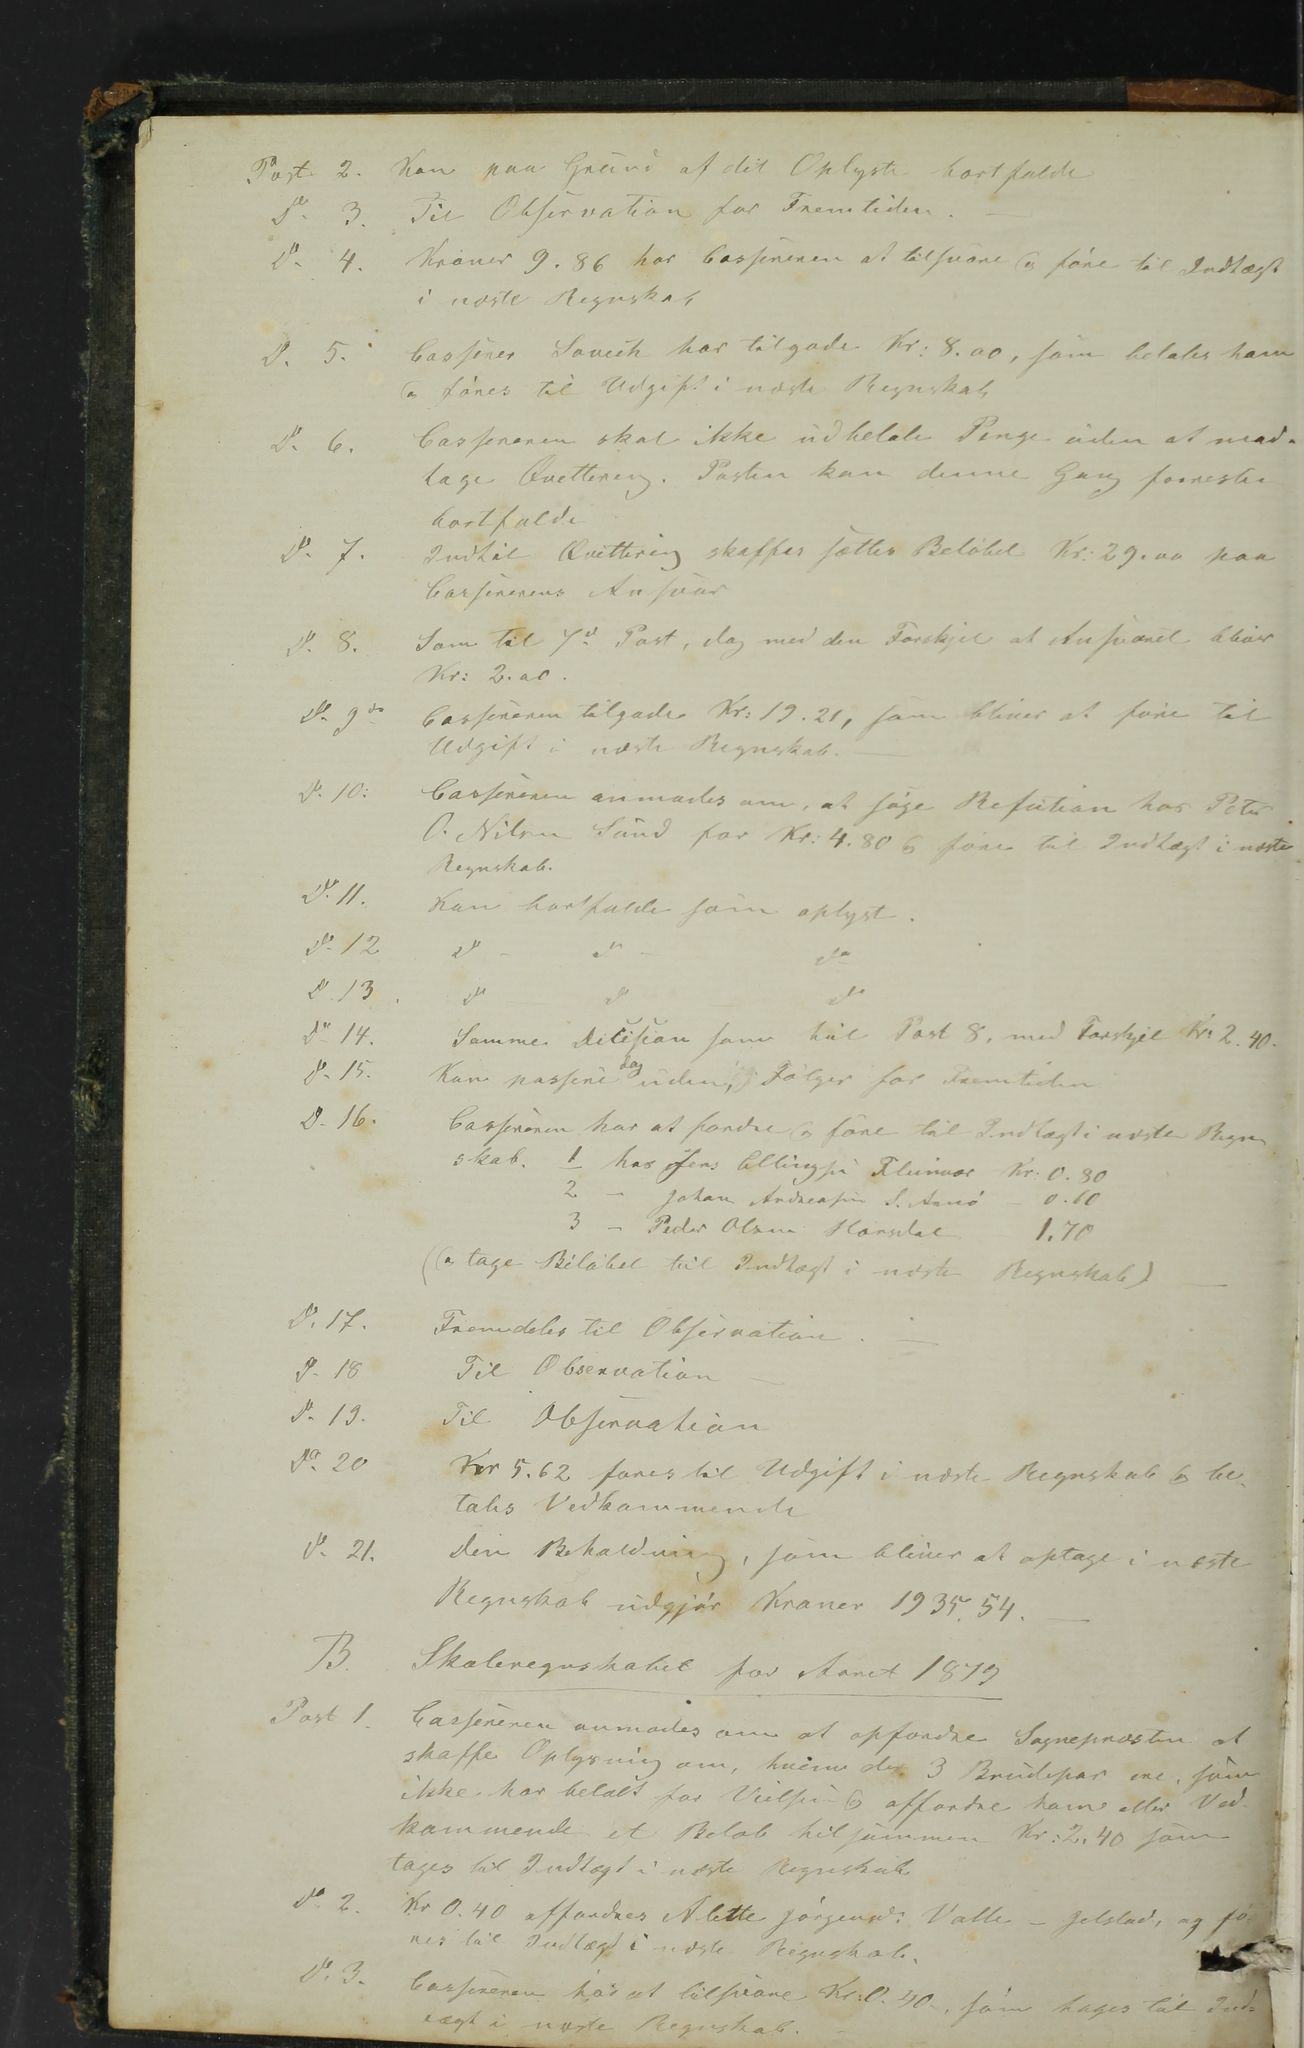 Post 2. Kan paa Grund af det Oplyste bortfalde
Do. 3. Til Observation for Fremtiden. —
Do. 4. Kroner 9.86 har Cassereren at tilsvare og føre til Indtægt
i næste Regnskab
Do. 5. Casserer har tilgode Kr: 8.00, som betales ham
og føres til Udgift i næste Regnskab
Do. 6. Cassereren skal ikke udbetale Penge uden at mod-
tage Qvittering. Posten kan denne Gang forresten
bortfalde
Do. 7. Indtil Qvittering skaffes sættes Beløbet Kr: 29.00 paa
Cassererens Ansvar
Do. 8. Som til 7d Post, dog med den Forskjel at Ansvaret bliver
Kr: 2.00.
Do. 9de Cassereren tilgode Kr: 19.21, som bliver at føre til
Udgift i næste Regnskab. —
Do. 10: Cassereren anmodes om, at søge Refution hos Peter
O. Nilsen Sund for Kr: 4.80 og føre til Indtægt i næste
Regnskab.
Do. 11. Kan bortfalde som oplyst.
Do. 12 Do — Do — Do
Do. 13. Do — Do — Do
Do. 14. Samme Decision som til Post 8, med Forskjel Kr: 2.40.
Do. 15. Kan passere dog uden Følger for Fremtiden
Do. 16. Cassereren har at fordre og føre til Indtægt i næste Regn
skab. 1 hos Jens Ellingsen Fleinvær Kr: 0.80
2 — Johan Andreasen S. Arnø — 0.60
3 — Peder Olsen Horsdal 1.70
(og tage Beløbet til Indtægt i næste Regnskab) —
Do. 17. Fremdeles til Observation. —
Do. 18 Til Observation —
Do. 19. Til Observation
Do. 20 Kr 5.62 føres til Udgift i næste Regnskab og be-
tales Vedkommende
Do. 21. Den Beholdning, som bliver at optage i næste
Regnskab udgjør Kroner 1935.54. —
B. Skoleregnskabet for Aaret 1879
Post 1. Cassereren anmodes om at opfordre Sognepræsten at
skaffe Oplysning om, hvem de 3 Brudepar ere, som
ikke har betalt for Vielsen og affordre ham eller Ved-
kommende et Beløb tilsammen Kr: 2.40 som
tages til Indtægt i næste Regnskab
Do. 2. Kr 0.40 affordres Alette Jørgensd: Valle — Jelstad, og fø
res til Indtægt i næste Regnskab.
Do. 3. Cassereren har at tilsvare Kr: 0.40, som tages til Ind-
tægt i næste Regnskab. —